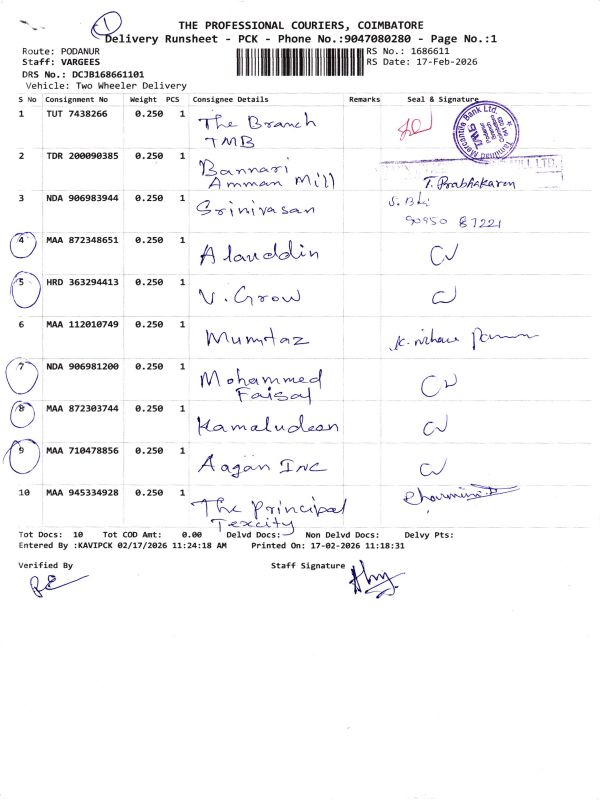 1
THE PROFESSIONAL COURIERS, COIMBATORE
Delivery Runsheet - PCK - Phone No.:9047080280 - Page No.:1
Route: PODANUR
RS No.: 1686611
Staff: VARGEES
RS Date: 17-Feb-2026
DRS No.: DCJB168661101
Vehicle: Two Wheeler Delivery
S No Consignment No Weight PCS Consignee Details Remarks Seal & Signature
1 TUT 7438266 0.250 1 The Branch
TMB
Tamilnad Mercantile Bank Ltd.
2 TDR 200090385 0.250 1 Bannari
Amman Mill
T. Prabhakaran
3 NDA 906983944 0.250 1 Srinivasan
90950 87221
4 MAA 872348651 0.250 1 Alauddin
5 HRD 363294413 0.250 1 V. Grow
6 MAA 112010749 0.250 1 Mumtaz
7 NDA 906981200 0.250 1 Mohammed
Faisal
8 MAA 872303744 0.250 1 Kamaludeen
9 MAA 710478856 0.250 1 Aagan Inc
10 MAA 945334928 0.250 1 The Principal
Texcity
Tot Docs: 10 Tot COD Amt: 0.00 Delvd Docs: Non Delvd Docs: Delvy Pts:
Entered By :KAVIPCK 02/17/2026 11:24:18 AM Printed On: 17-02-2026 11:18:31
Verified By
Staff Signature